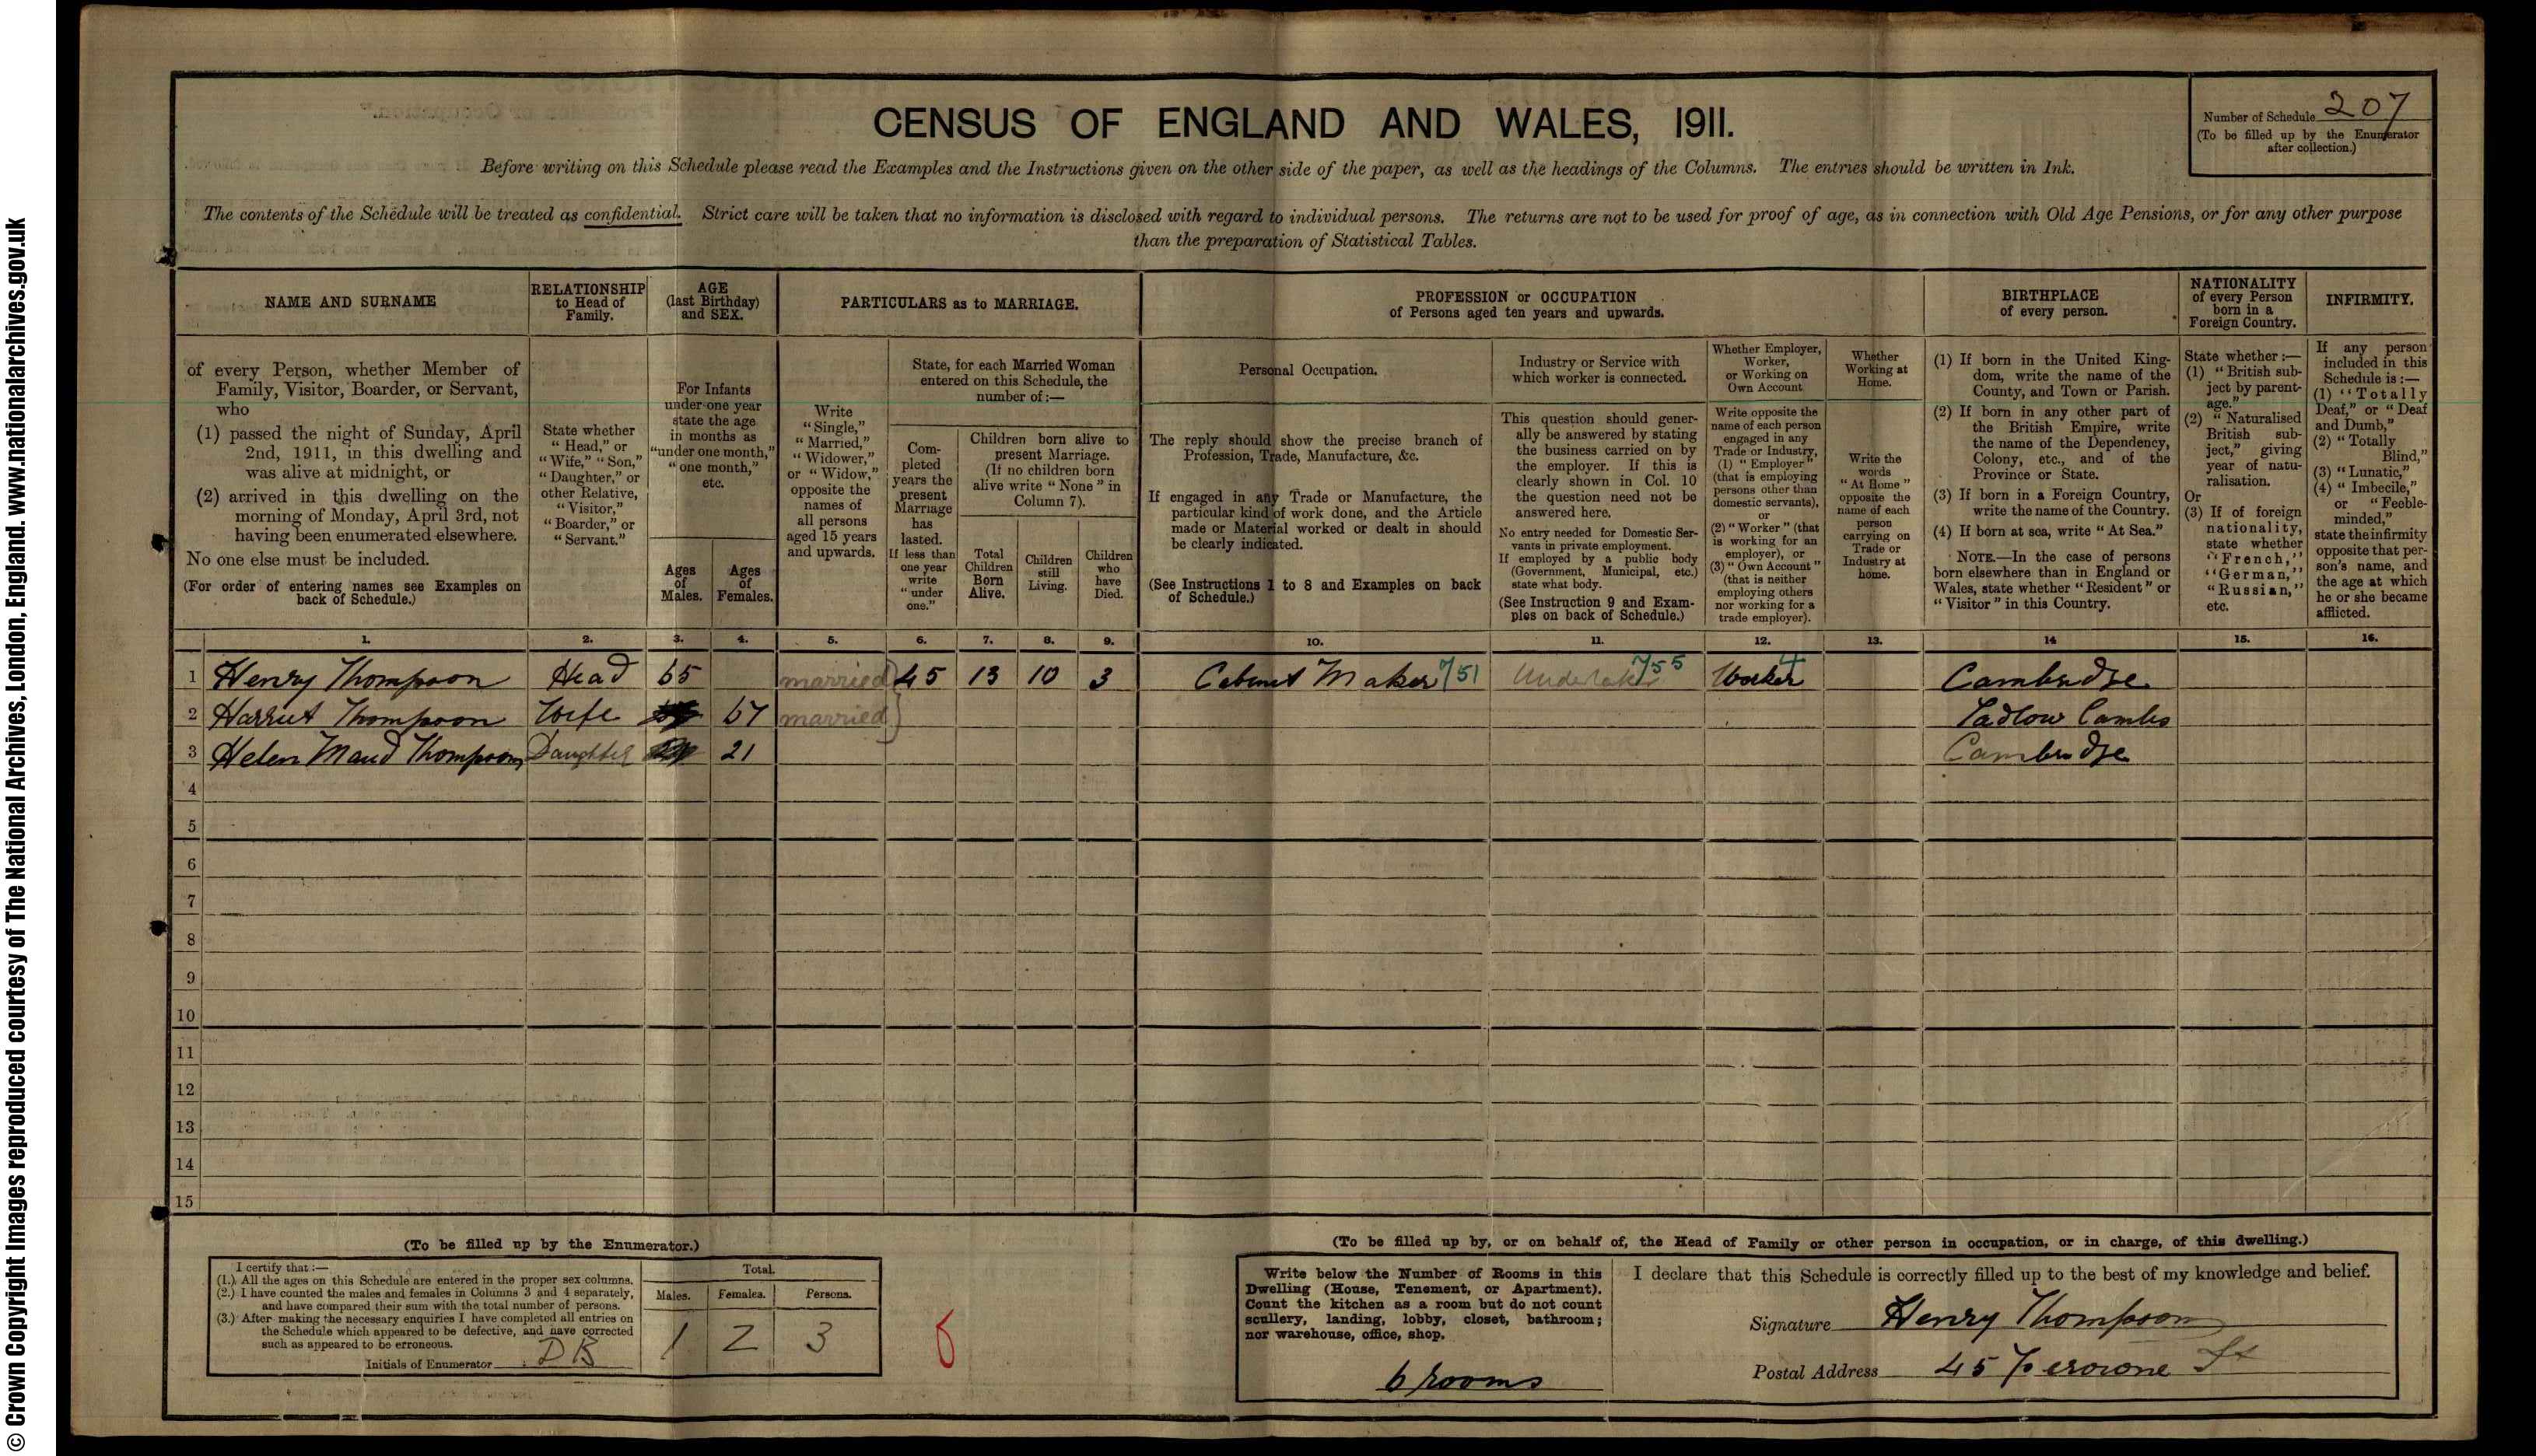 © Crown Copyright Images reproduced courtesy of The National Archives, London, England. www.nationalarchives.gov.uk
CENSUS OF ENGLAND AND WALES, 1911.
Number of Schedule 207
(To be filled up by the Enumerator
after collection.)
Before writing on this Schedule please read the Examples and the Instructions given on the other side of the paper, as well as the headings of the Columns. The entries should be written in Ink.
The contents of the Schedule will be treated as confidential. Strict care will be taken that no information is disclosed with regard to individual persons. The returns are not to be used for proof of age, as in connection with Old Age Pensions, or for any other purpose
than the preparation of Statistical Tables.
NAME AND SURNAME
of every Person, whether Member of
Family, Visitor, Boarder, or Servant,
who
(1) passed the night of Sunday, April
2nd, 1911, in this dwelling and
was alive at midnight, or
(2) arrived in this dwelling on the
morning of Monday, April 3rd, not
having been enumerated elsewhere.
No one else must be included.
(For order of entering names see Examples on
back of Schedule.)
RELATIONSHIP
to Head of
Family.
State whether
"Head," or
"Wife," "Son,"
"Daughter," or
other Relative,
"Visitor,"
"Boarder," or
"Servant."
AGE
(last Birthday)
and SEX.
For Infants
under one year
state the age
in months as
"under one month,"
"one month,"
etc.
Ages
of
Males.
Ages
of
Females.
PARTICULARS as to MARRIAGE.
Write
"Single,"
"Married,"
"Widower,"
or "Widow,"
opposite the
names of
all persons
aged 15 years
and upwards.
State, for each Married Woman
entered on this Schedule, the
number of:—
Com-
pleted
years the
present
Marriage
has
lasted.
If less than
one year
write
"under
one."
Children born alive to
present Marriage.
(If no children born
alive write "None" in
Column 7).
Total
Children
Born
Alive.
Children
still
Living.
Children
who
have
Died.
PROFESSION or OCCUPATION
of Persons aged ten years and upwards.
Personal Occupation.
The reply should show the precise branch of
Profession, Trade, Manufacture, &c.
If engaged in any Trade or Manufacture, the
particular kind of work done, and the Article
made or Material worked or dealt in should
be clearly indicated.
(See Instructions 1 to 8 and Examples on back
of Schedule.)
Industry or Service with
which worker is connected.
This question should gener-
ally be answered by stating
the business carried on by
the employer. If this is
clearly shown in Col. 10
the question need not be
answered here.
No entry needed for Domestic Ser-
vants in private employment.
If employed by a public body
(Government, Municipal, etc.)
state what body.
(See Instruction 9 and Exam-
ples on back of Schedule.)
Whether Employer,
Worker,
or Working on
Own Account
Write opposite the
name of each person
engaged in any
Trade or Industry,
(1) "Employer"
(that is employing
persons other than
domestic servants),
or
(2) "Worker" (that
is working for an
employer), or
(3) "Own Account"
(that is neither
employing others
nor working for a
trade employer).
Whether
Working at
Home.
Write the
words
"At Home"
opposite the
name of each
person
carrying on
Trade or
Industry at
home.
BIRTHPLACE
of every person.
(1) If born in the United King-
dom, write the name of the
County, and Town or Parish.
(2) If born in any other part of
the British Empire, write
the name of the Dependency,
Colony, etc., and of the
Province or State.
(3) If born in a Foreign Country,
write the name of the Country.
(4) If born at sea, write "At Sea."
NOTE.—In the case of persons
born elsewhere than in England or
Wales, state whether "Resident" or
"Visitor" in this Country.
NATIONALITY
of every Person
born in a
Foreign Country.
State whether:—
(1) "British sub-
ject by parent-
age."
(2) "Naturalised
British sub-
ject," giving
year of natu-
ralisation.
Or
(3) If of foreign
nationality,
state whether
"French,"
"German,"
"Russian,"
etc.
INFIRMITY.
If any person
included in this
Schedule is:—
(1) "Totally
Deaf," or "Deaf
and Dumb,"
(2) "Totally
Blind,"
(3) "Lunatic,"
(4) "Imbecile,"
or "Feeble-
minded,"
state the infirmity
opposite that per-
son's name, and
the age at which
he or she became
afflicted.
1. 2. 3. 4. 5. 6. 7. 8. 9. 10. 11. 12. 13. 14 15. 16.
1 Henry Thompson Head 65 married 45 13 10 3 Cabinet Maker 751 Undertaker 755 Worker 4 Cambridge
2 Harriet Thompson Wife 67 married Tadlow Cambs
3 Helen Maud Thompson Daughter 21 Cambridge
4
5
6
7
8
9
10
11
12
13
14
15
(To be filled up by the Enumerator.)
I certify that:—
(1.) All the ages on this Schedule are entered in the proper sex columns.
(2.) I have counted the males and females in Columns 3 and 4 separately,
and have compared their sum with the total number of persons.
(3.) After making the necessary enquiries I have completed all entries on
the Schedule which appeared to be defective, and have corrected
such as appeared to be erroneous.
Initials of Enumerator DB
Total.
Males. Females. Persons.
1 2 3
6
(To be filled up by, or on behalf of, the Head of Family or other person in occupation, or in charge, of this dwelling.)
Write below the Number of Rooms in this
Dwelling (House, Tenement, or Apartment).
Count the kitchen as a room but do not count
scullery, landing, lobby, closet, bathroom;
nor warehouse, office, shop.
6 rooms
I declare that this Schedule is correctly filled up to the best of my knowledge and belief.
Signature Henry Thompson
Postal Address 45 Perowne St